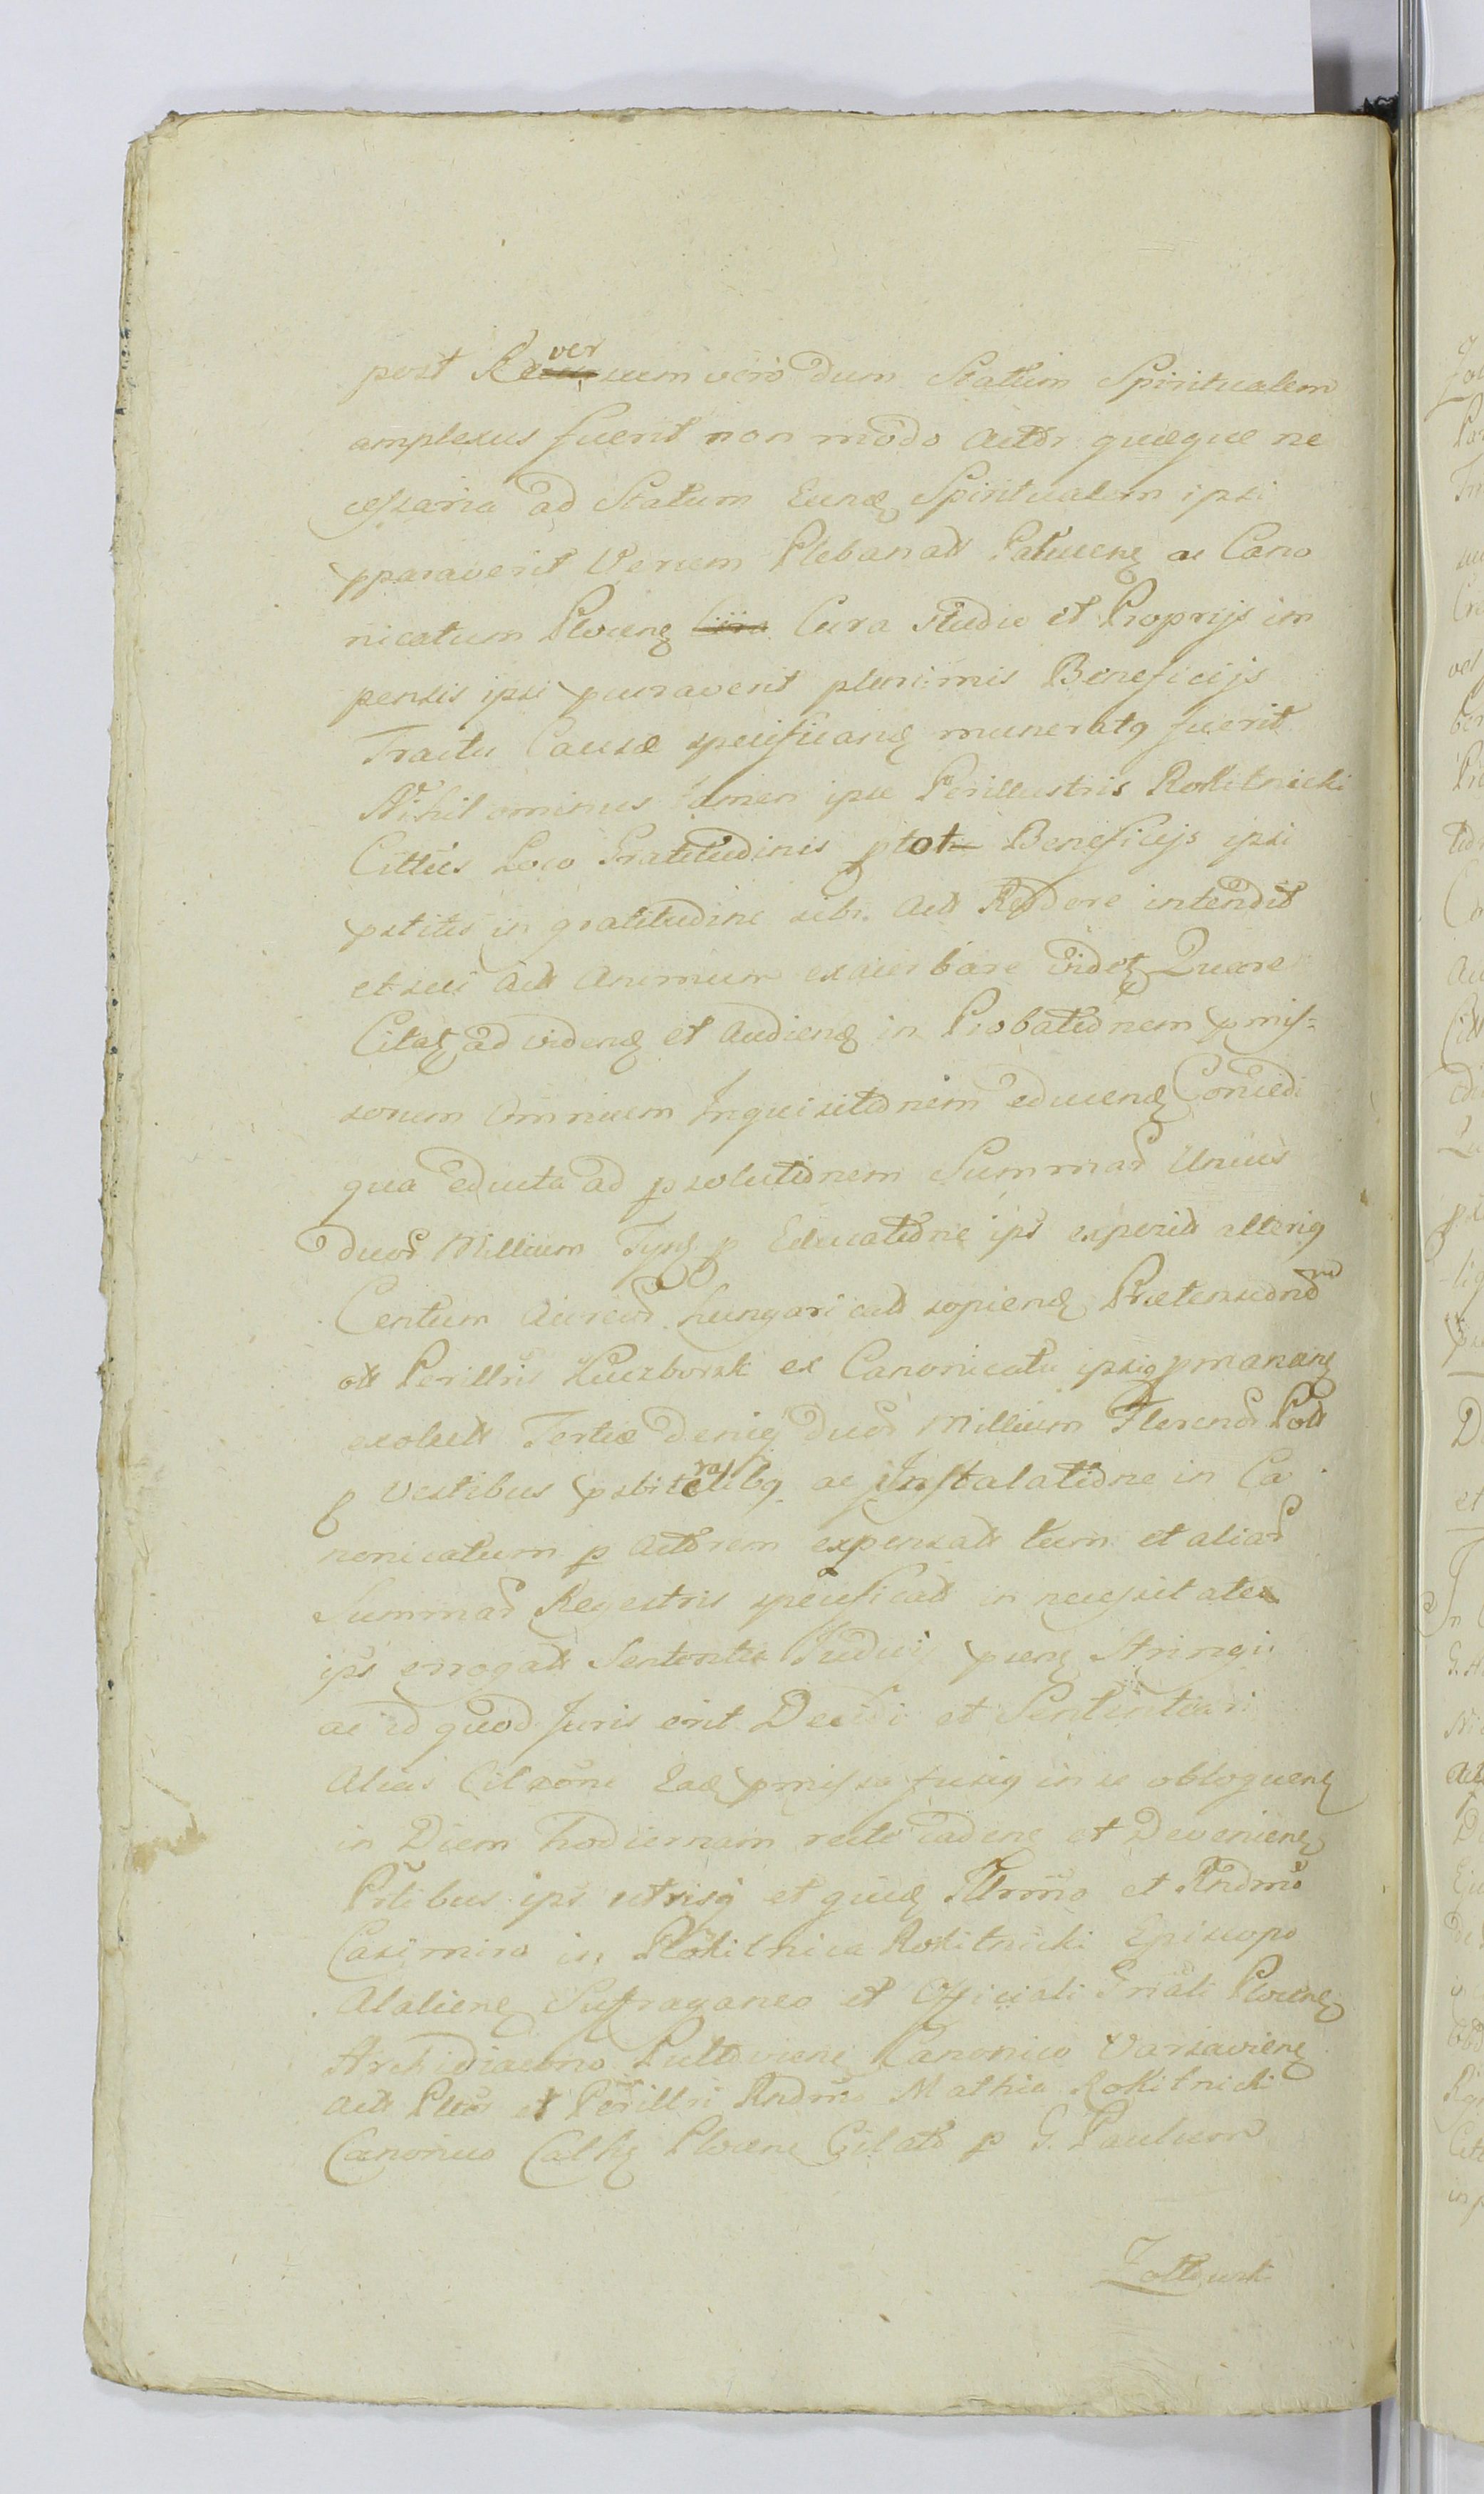 post Re ver suum vero dum Statum Spiritualem
amplexus fuerit non modo Actor quæque ne
cessaria ad Statum Eund Spiritualem ipsi
pparaverit Verum Plebanatt ac Cano
nicatum Plocen Cura Cura Studio et Proprijs im
pensis ipsi pcuraverit plurimis Beneficijs
Tractu Causæ specificand muneratq fuerit
Nihilominus tamen ipse Perillustris Rokitnicki
Cittus Loco Gratitudinis p tot Beneficijs ipsi
pstitis in gratitudine sibi Actt Reddere intendit
et sui Actt Animum exacerbare videt Quare
Citat ad vidend et Audiend in Probationem pmis=
sorum Omnium Inquisitionem educend Concedi
qua educta ad psolutionem Summar Unius
duor Millium Tynf p Educatione ips exposit alteriq
Centum Aureor hungaricatt sopiend Prætensionem
ott Perillris Kuczborsk ex Canonicatu ipsiq pmanan
exolutt Tertiæ deniq duor Millium Florenor Poll
p Vestibus psbiteralibq ac Instalatione in Ca
nonicatum p Actorem expensatt tum et aliar
Summar Regestris specificatt in necessitates
ips errogatt Sententia Judicij pnen Stringi
ac id quod Juris erit Decidi et Sententiari
Alias Cilaone Ead pmissa fusiq in se obloquen
in Diem hodiernam recte caden et Devenien
Prtibus ips utrisq et quid Illrmo et Rndmo
Casimiro in Rokitnica Rokitnicki Episcopo
Alalien Sufraganeo et Officiali Gnali Plocen
Archidiacono Pultovien Canonico Varsavien
Actt Plus et Perillri Rndmo Mathia Rokitnicki
Canonico Cathg Plocen Cilato p G. Paulum